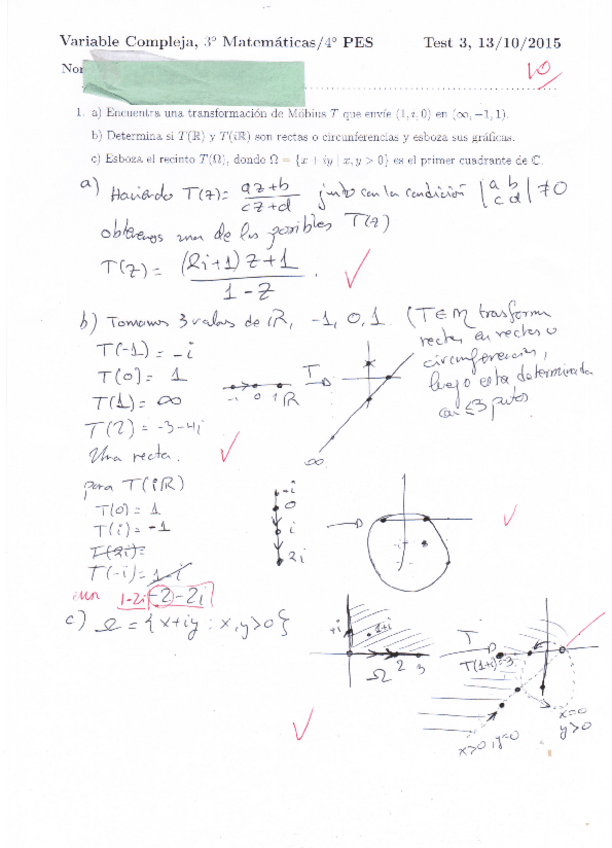 Variable Compleja, 3º Matemáticas/4º PES Test 3, 13/10/2015
10
1. a) Encuentra una transformación de Möbius T que envíe (1, i, 0) en (∞, −1, 1).
b) Determina si T(ℝ) y T(iℝ) son rectas o circunferencias y esboza sus gráficas.
c) Esboza el recinto T(Ω), donde Ω = {x + iy | x, y > 0} es el primer cuadrante de ℂ.
a) Haciendo T(z) = az+b / cz+d junto con la condición |a b c d| ≠ 0
obtenemos una de las posibles T(z)
T(z) = (2i+1)z+1 / 1−z .
b) Tomamos 3 valores de iR, -1, 0, 1. (T∈M trasforma
rectas en rectas o
circunferencias,
luego esta determinada
con ≤3 ptos
T(-1) = -i
T(0) = 1
T(1) = ∞
T(2) = -3-4i
Una recta.
T
-1 0 1 R
∞
para T(iR)
T(0) = 1
T(i) = -1
T(2i)=
T(-i) = 1-i
1-2i -2-2i
-i
0
i
2i
c) Ω = {x+iy : x,y>0}
Ω 2 3
T
T(1+i)=-3
x=0
y>0
x>0, y=0